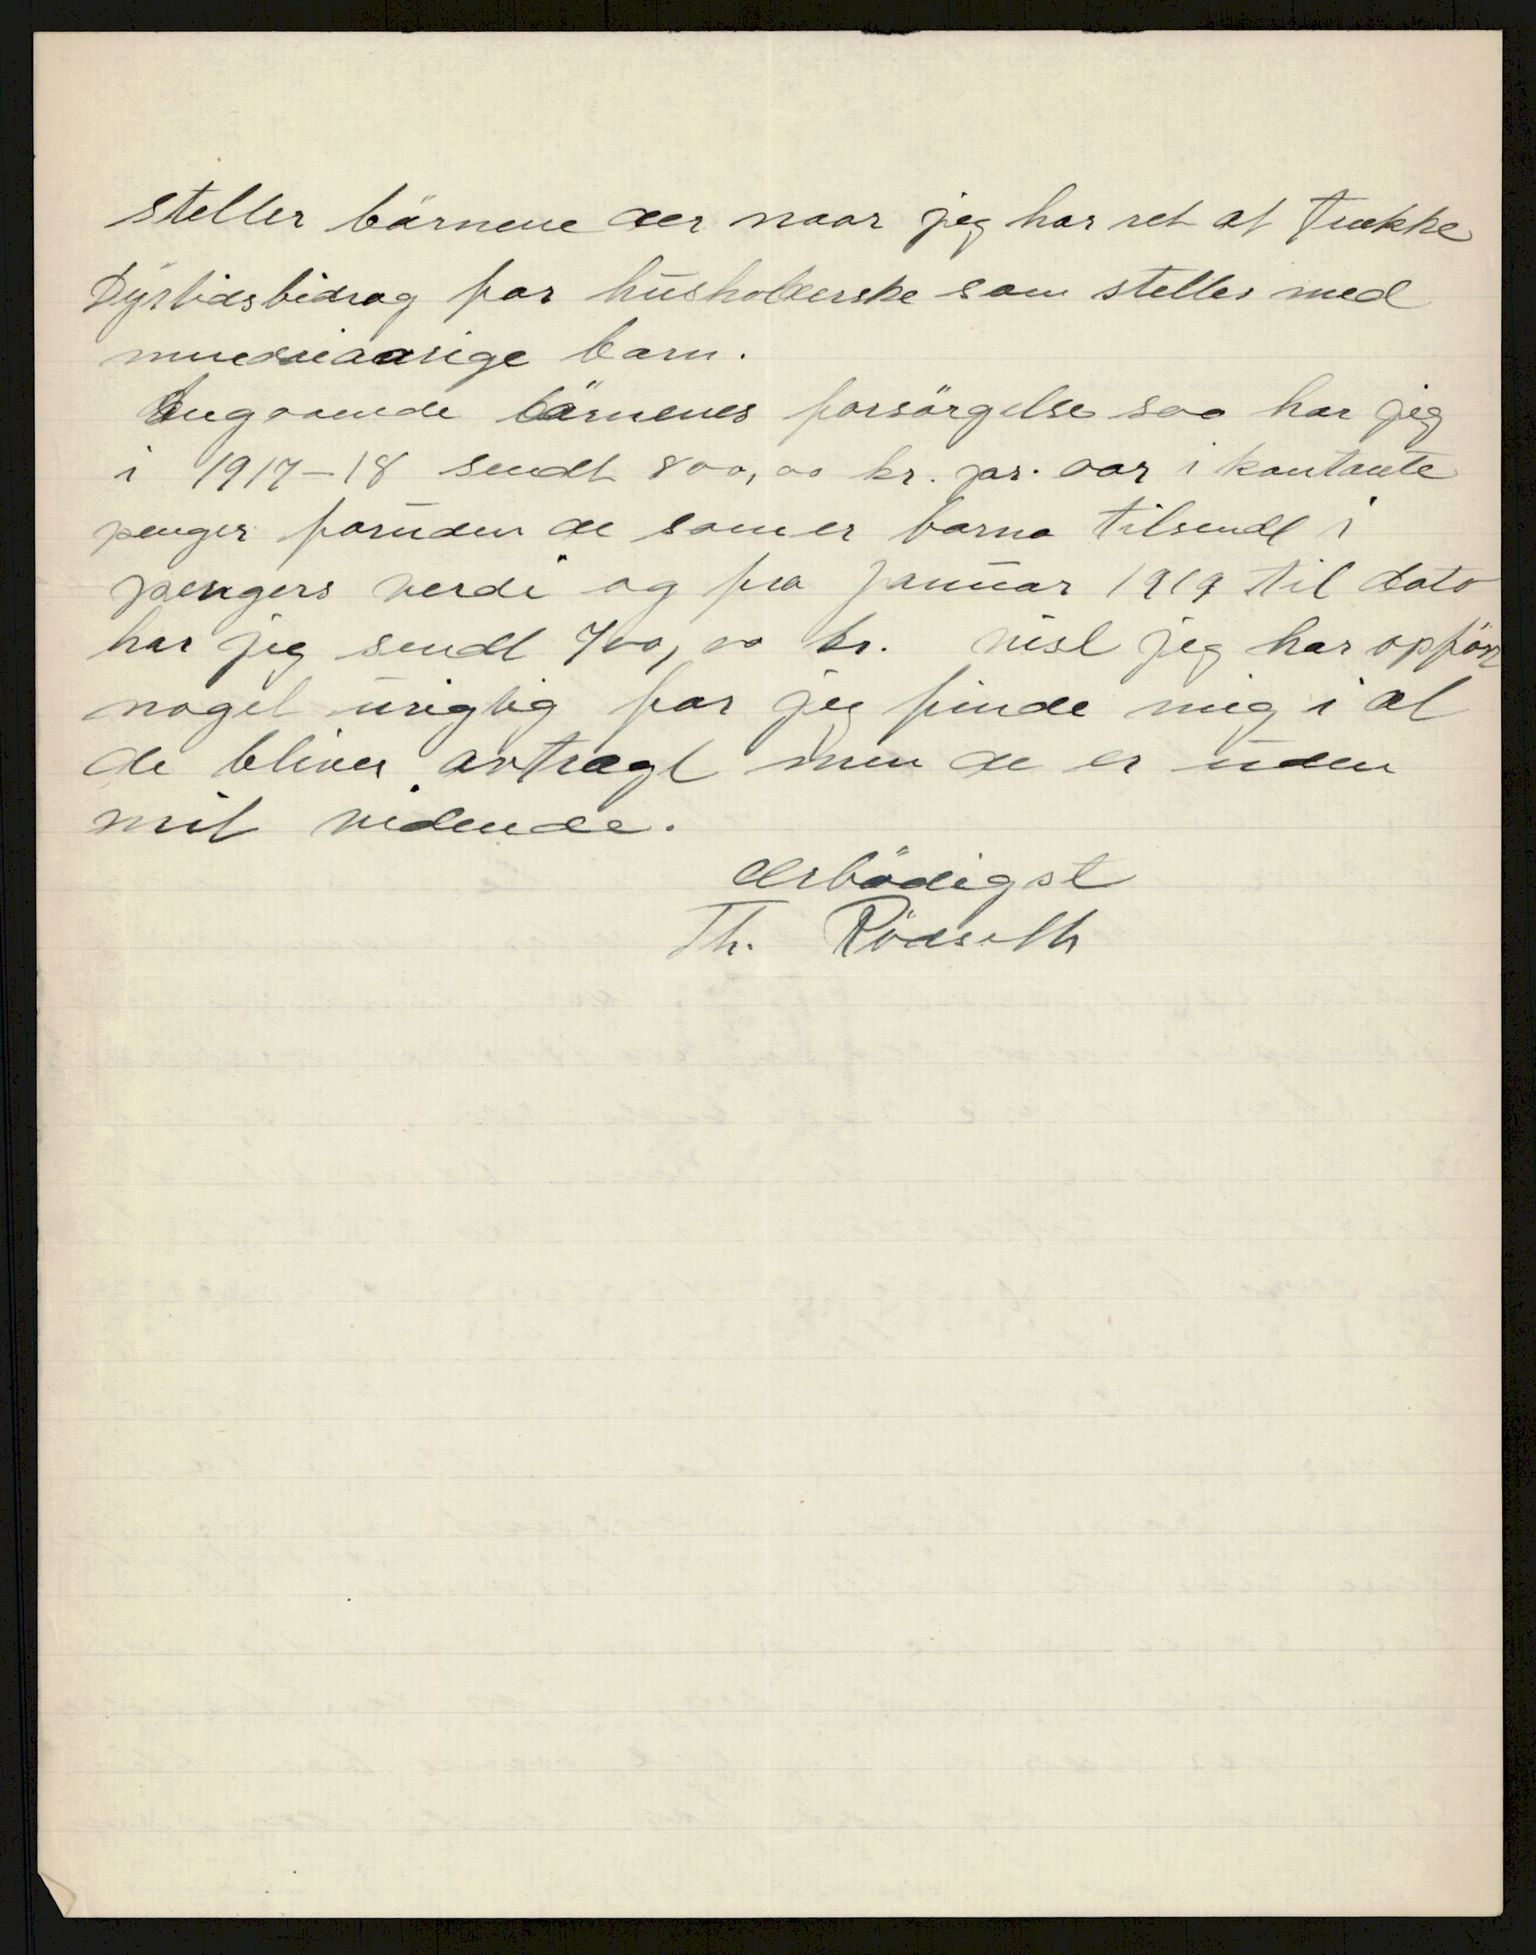 steller bärnene der naar jeg har ret at trække
Dyrtidsbidrag for husholderske som steller med
mindreaarige barn.
Angaaende bärnenes forsörgelse saa har jeg
i 1917-18 sendt 800,00 kr. pr. aar i kontante
penger foruden de som er barna tilsendt i
pengers verdi og fra Januar 1919 til dato
har jeg sendt 700,00 kr. vist jeg har opför
noget urigtig far jeg finde mig i at
de bliver avtragt men de er uden
mit vidende.
Ærbödigst
Th. Rödseth